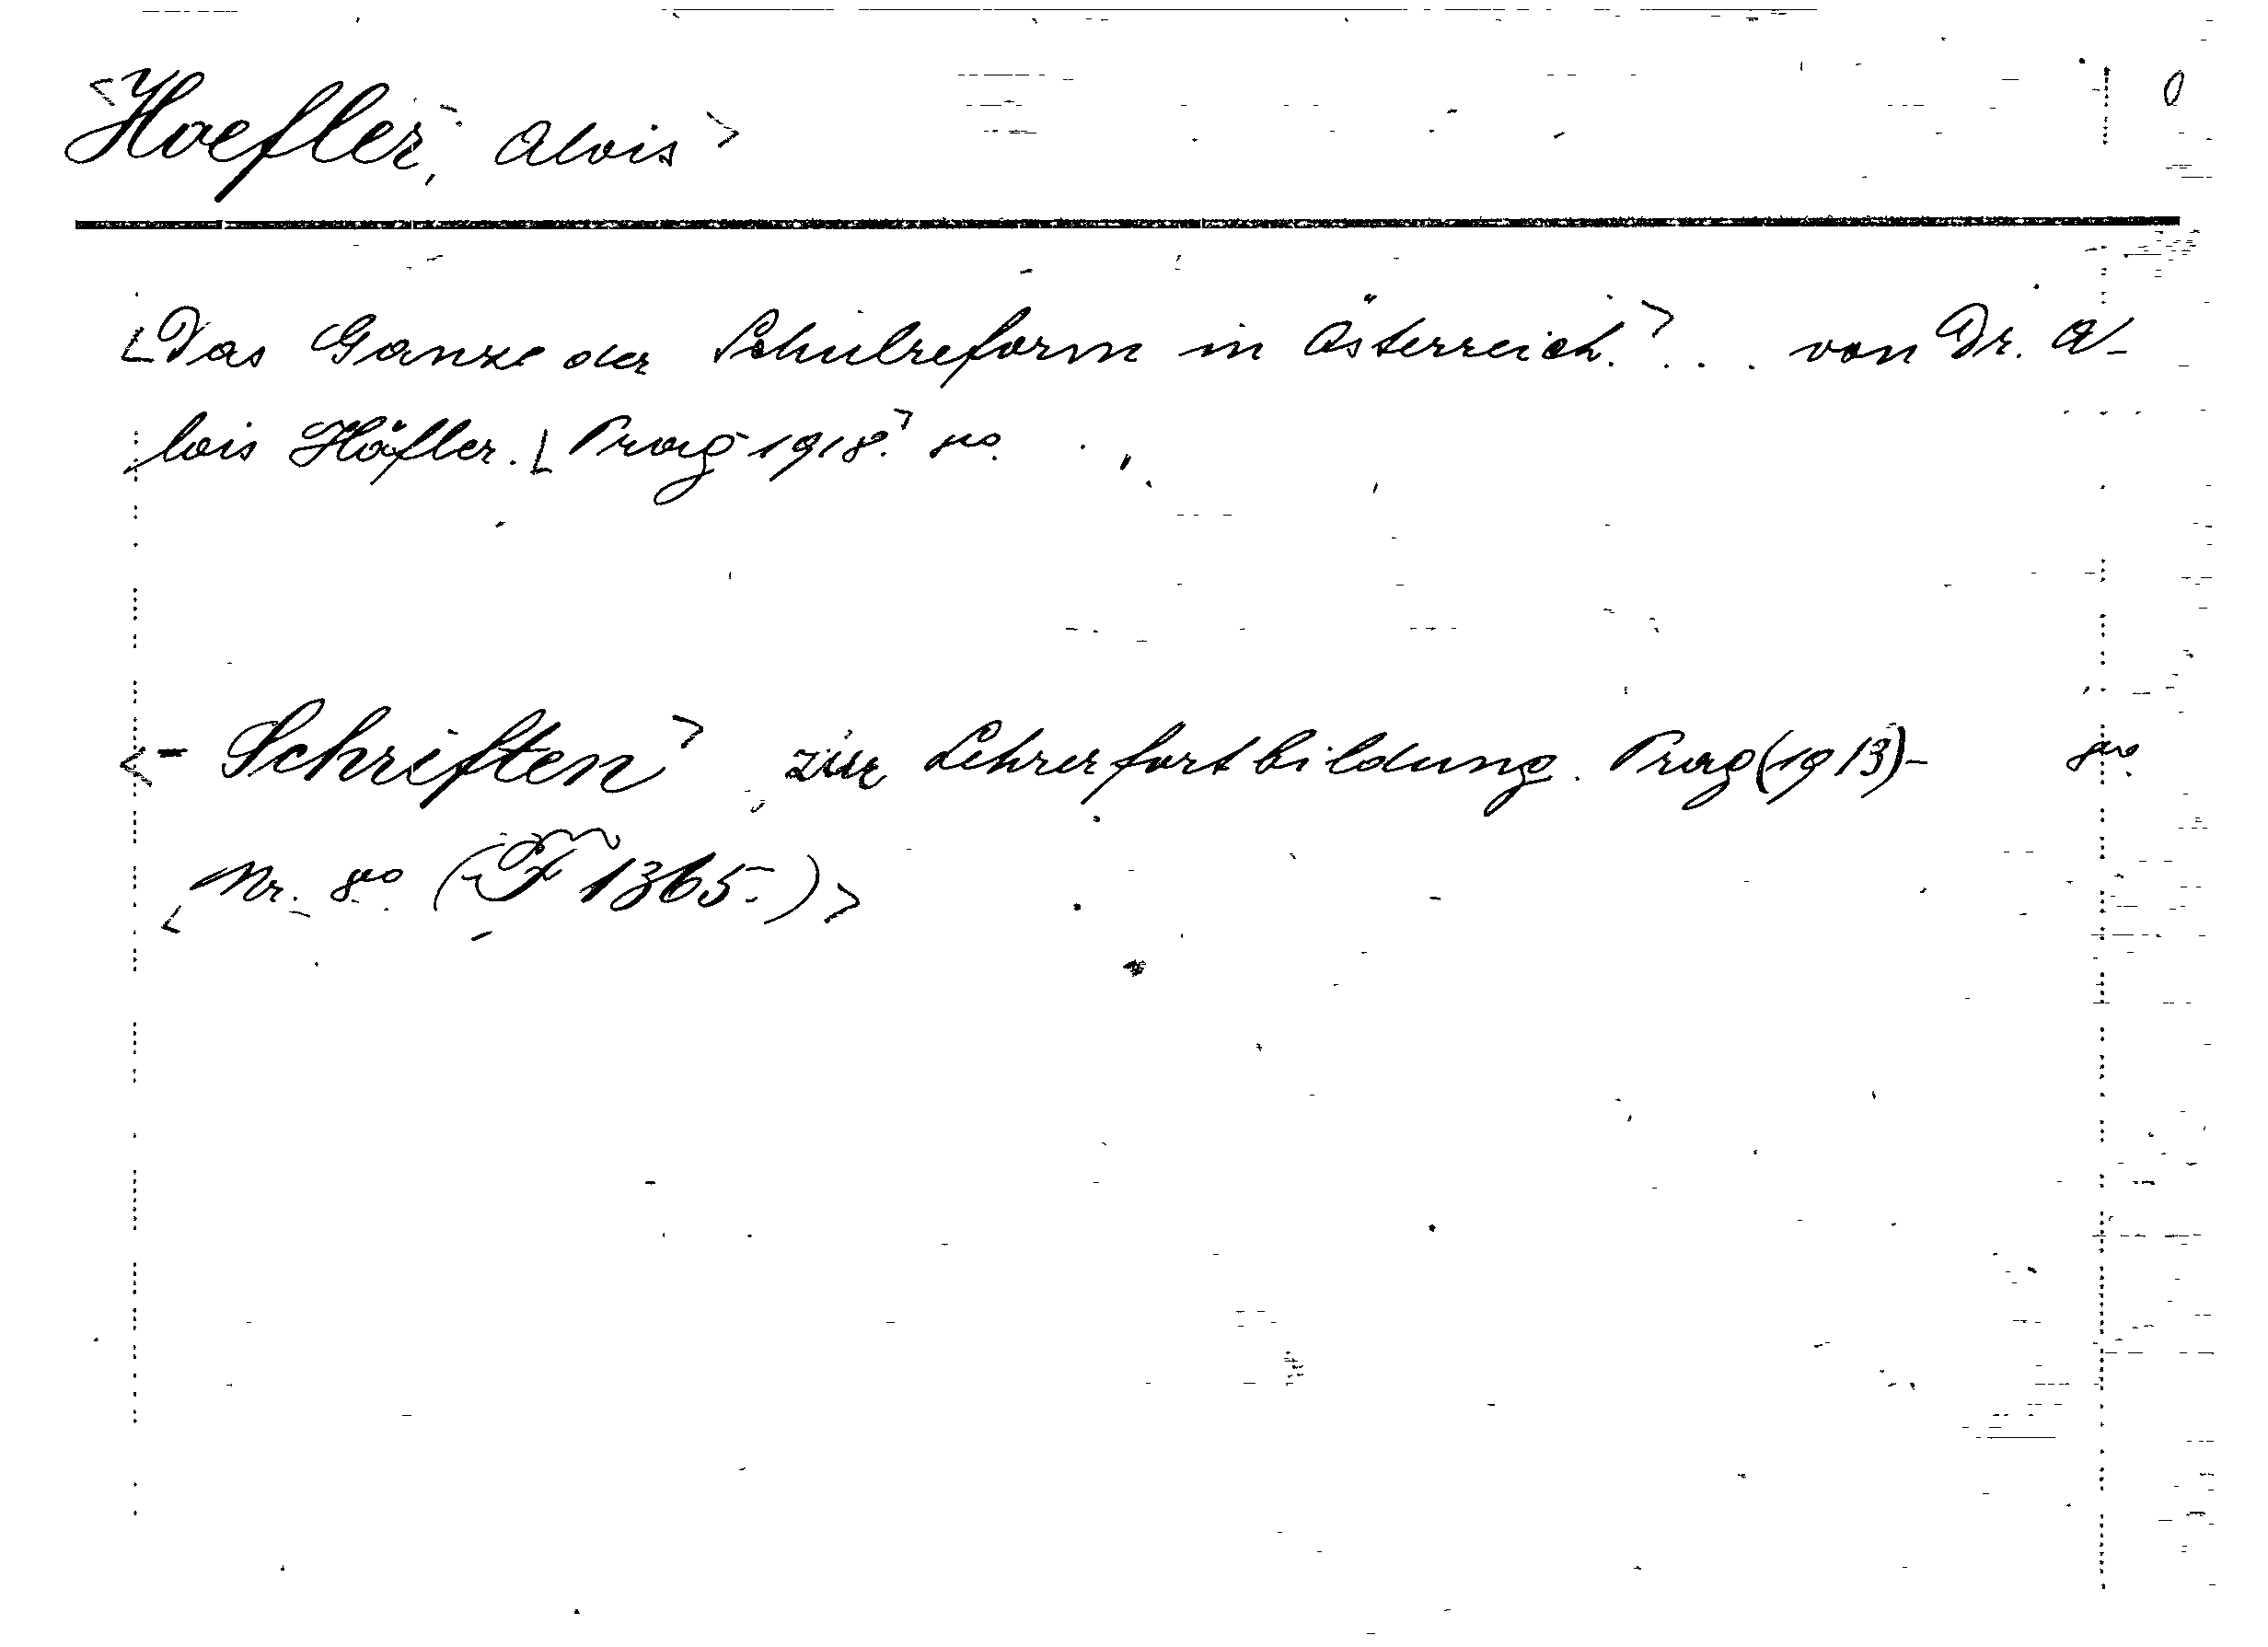 <Hoefler, Alois> 0
[Das Ganze der Schulreform in Österreich.> ... von Dr. A-
lois Höfler. [Prag 1918.> 8vo.
<- Schriften> zur Lehrerfortbildung. Prag (1913)- 8vo.
<Nr. 8vo (F 1365.)>